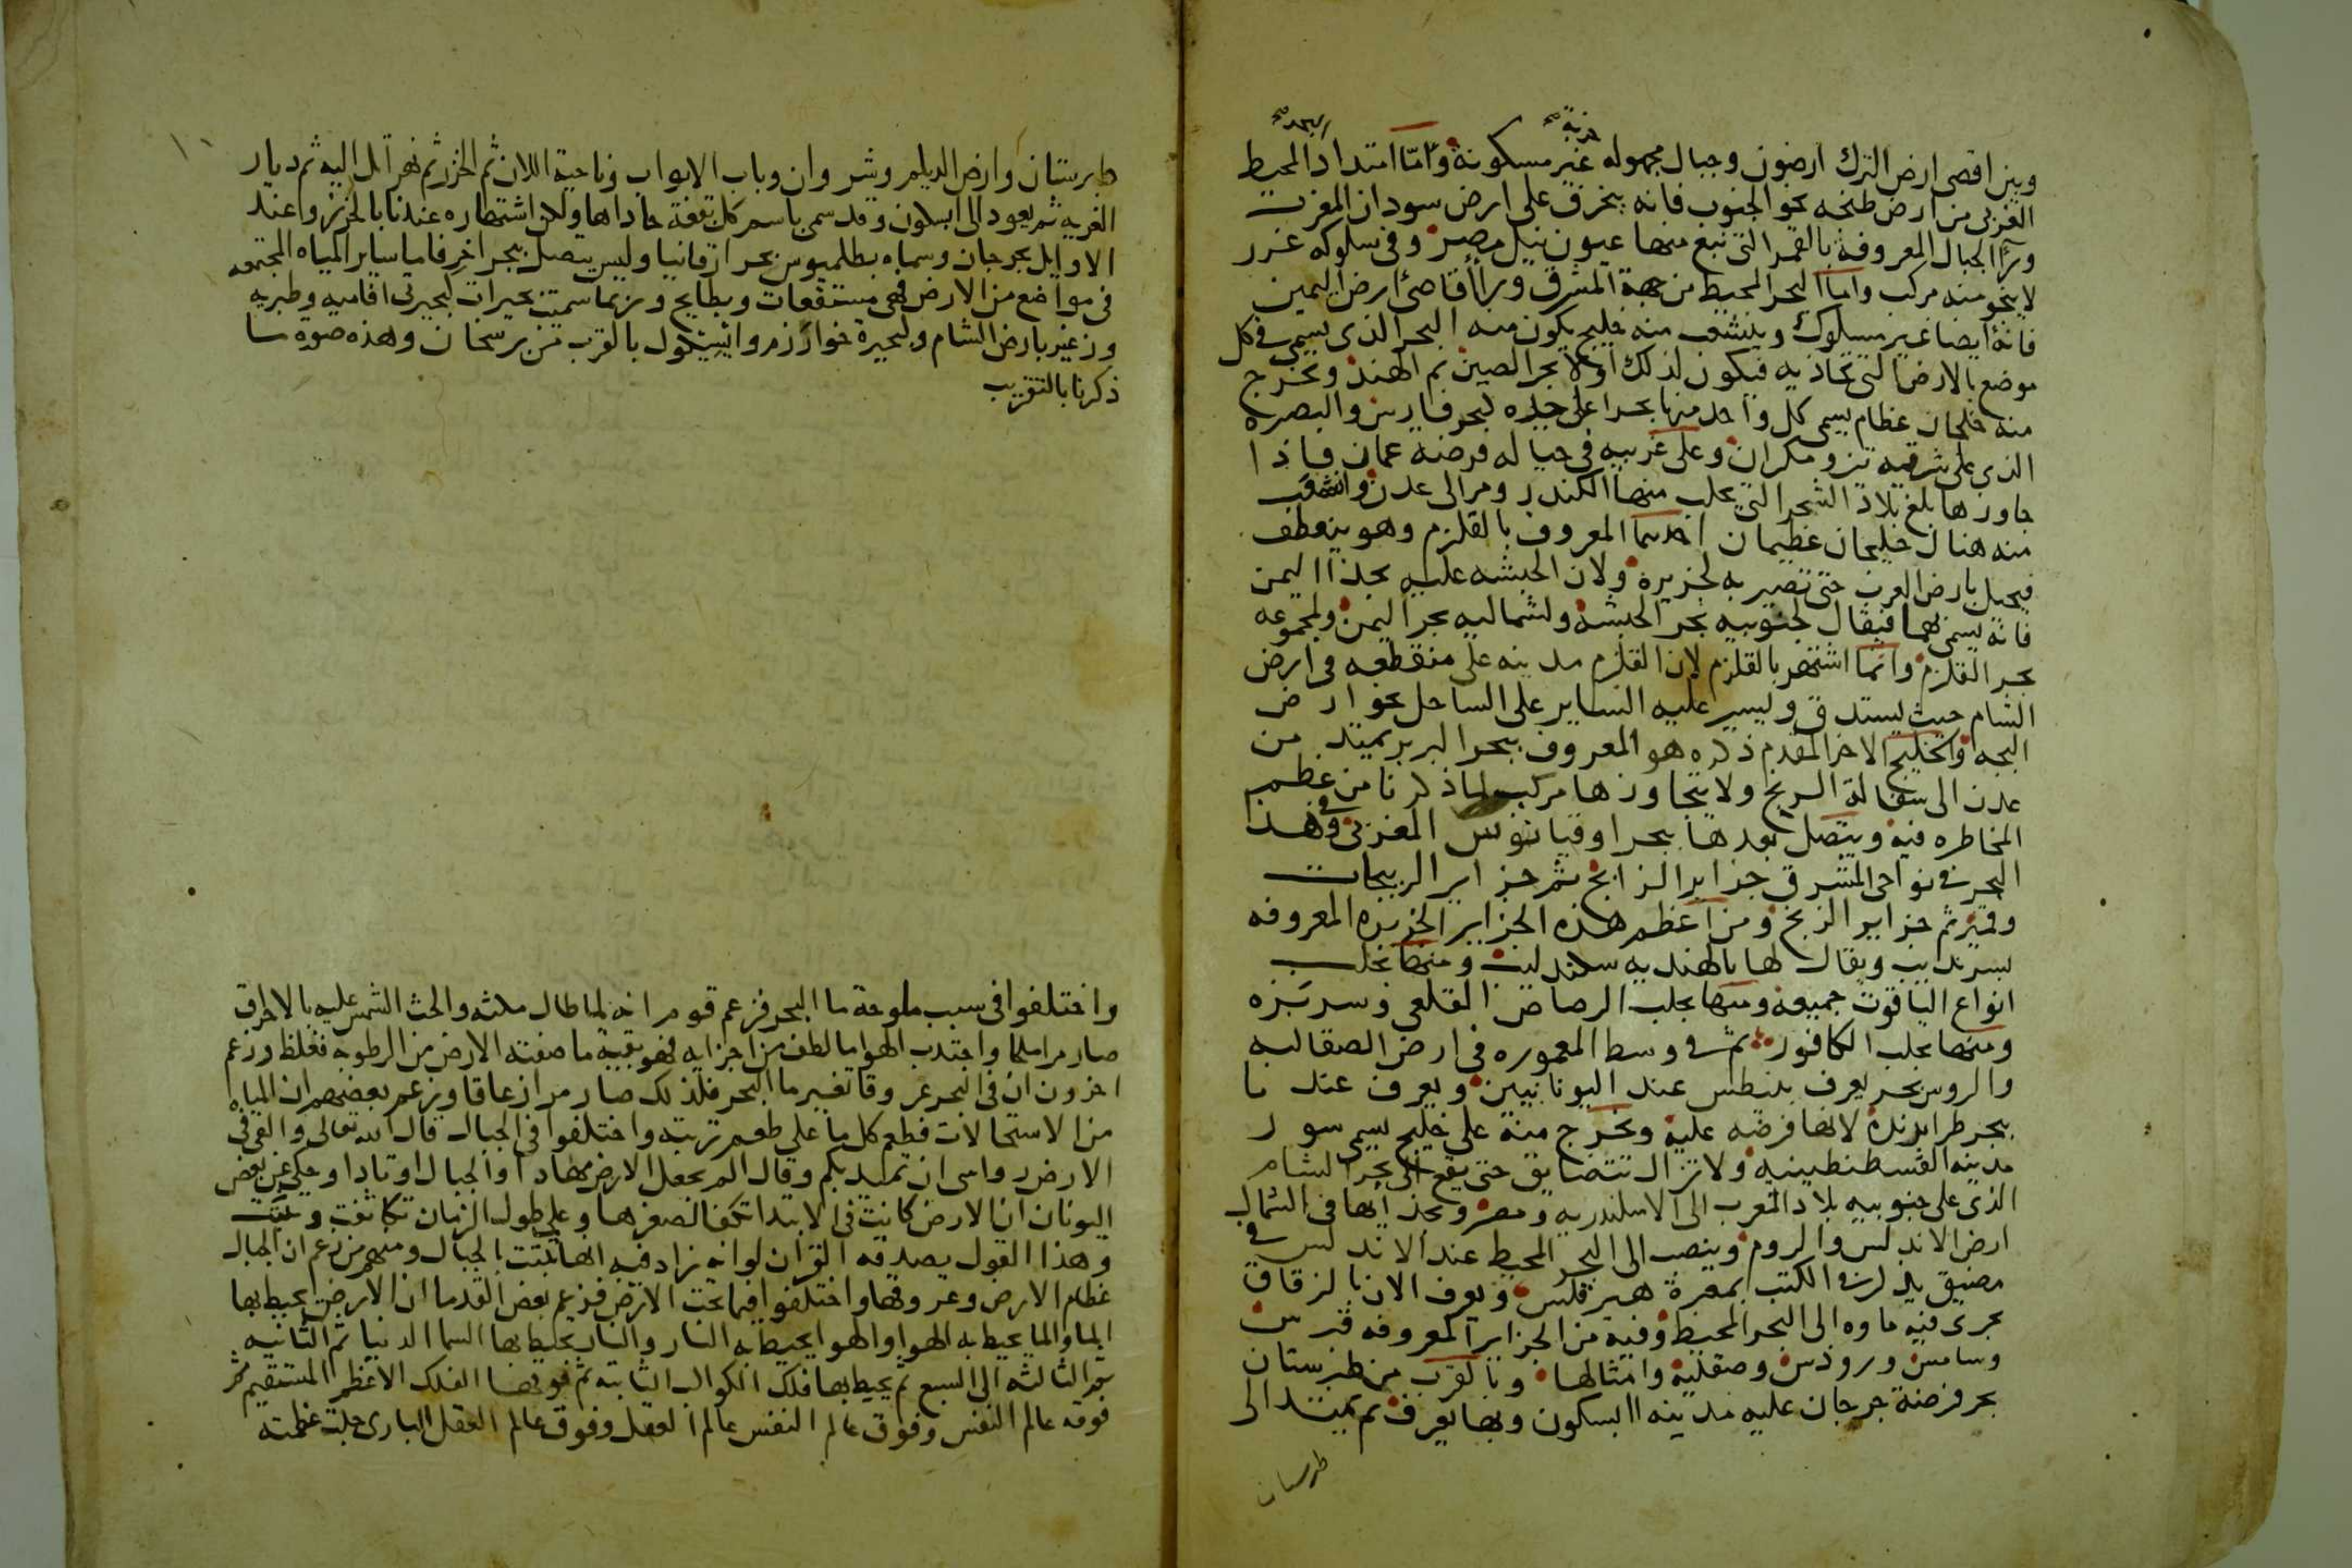 وبين اقصى ارض الترك ارضون وجبال مجهوله خربة غير مسكونة واما امتداد البحر المحيط
الغربى من ارض طنجه نحو الجنوب فانه ينحرف على ارض سودان المغرب
ورآ الجبال المعروفة بالقمر التى تنبع منها عيون نيل مصر وفى سلوكه غرر
لا ينجو منه مركب واما البحر المحيط من جهة المشرق ورآ اقاصى ارض الصين
فانه ايضا غير مسلوك وينشعب منه خليج يكون منه البحر الذى يسمى فى كل
موضع بالارض التى تحاذيه فيكون لذلك اولا بحر الصين ثم الهند وتخرج
منه خلجان عظام يسمى كل واحد منها بحرا على حده كبحر فارس والبصره
الذى على شرقيه تيز ومكران وعلى غربيه فى حياله فرضة عمان فاذا
جاوزها بلغ بلاد الشحر التى يجلب منها الكندر ومر الى عدن وانشعب
منه هناك خليجان عظيمان احدهما المعروف بالقلزم وهو ينعطف
فيحيل بارض العرب حتى تصير به كجزيرة ولان الحبشه عليه بحذا اليمن
فانه يسمى بهما فيقال لجنوبيه بحر الحبشة ولشماليه بحر اليمن ولمجموعه
بحر القلزم وانما اشتهر بالقلزم لان القلزم مدينه على منقطعه فى ارض
الشام حيث يستدق ويسير عليه الساير على الساحل نحو ارض
البجه والخليج الاخر المقدم ذكره هو المعروف ببحر البربر يمتد من
عدن الى سفالة الزنج ولا يتجاوزها مركب لما ذكرنا من عظم
المخاطره فيه ويتصل بعدها ببحر اوقيانوس المغربى وفى هذا
البحر فى نواحى المشرق جزاير الزابج ثم جزاير الريبجات
وقمير ثم جزاير الزنج ومن اعظم هذه الجزاير الجزيره المعروفه
بسرنديب ويقال لها بالهنديه سنكلديب ومنها تجلب
انواع الياقوت جميعه ومنها يجلب الرصاص القلعى وسربزه
ومنها يجلب الكافور ثم فى وسط المعموره فى ارض الصقالبه
والروس بحر يعرف ببنطس عند اليونانيين ويعرف عندنا
ببحر طرابزندة لانها فرضه عليه ويخرج منه على خليج يسمى سور
مدينه القسطنطينيه ولا تزال تتضايق حتى يقع الى بحر الشام
الذى على جنوبيه بلاد المغرب الى الاسكندريه ومصر وبحذائها فى الشمال
ارض الاندلس والروم وينصب الى البحر المحيط عند الاندلس فى
مضيق يذكر فى الكتب بمعبرة هيرقلس ويعرف الان بالزقاق
يجرى فيه ماوه الى البحر المحيط وفيه من الجزاير المعروفه قبرس
وسامس ورودس وصقلية وامثالها وبالقرب من طبرستان
بحر فرضة جرجان عليه مدينه ابسكون وبها يعرف ثم يمتد الى
طبرستان
طبرستان وارض الديلم وشروان وباب الابواب وناحية اللان ثم الخزر ثم نهر اتل اليه ثم ديار
الغزيه ثم يعود الى ابسكون وقد سمى باسم كل بقعة حاذاها ولكن اشتهاره عندنا بالخزر وعند
الاوايل بجرجان وسماه بطلميوس بحر ارقانيا وليس يتصل ببحر اخر فاما ساير المياه المجتمعه
فى مواضع من الارض فهى مستنقعات وبطايح وربما سميت بحيرات كبحيرتى افاميه وطبريه
وزغر بارض الشام وكبحيرة خوارزم وابيسكول بالقرب من برسخان وهذه صورة ما
ذكرنا بالتقريب
واختلفوا فى سبب ملوحة ما البحر فزعم قوم انه لما طال مكثه والحت الشمس عليه بالاحراق
صار مرا ملحا واجتذب الهوا ما لطف من اجزايه فهو بقية ما صفته الارض من الرطوبه فغلظ وزعم
اخرون ان فى البحر عروقا تغير ما البحر فلذلك صار مرا زعاقا وزعم بعضهم ان المياه
من الاستحالات فطعم كل ما على طعم تربته واختلفوا فى الجبال قال الله تعالى والقى فى
الارض رواسى ان تميد بكم وقال الم نجعل الارض مهادا والجبال اوتادا وحكى عن بعض
اليونان ان الارض كانت فى الابتدا تكفا لصغرها وعلى طول الزمان تكاثفت وثبتت
وهذا القول يصدقه القرآن لو انه زاد فيه انها ثبتت بالجبال ومنهم من زعم ان الجبال
عظام الارض وعروقها واختلفوا فيما تحت الارض فزعم بعض القدما ان الارض يحيط بها
الما والما يحيط به الهوا والهوا يحيط به النار والنار يحيط بها السما الدنيا ثم الثانيه
ثم الثالثه الى السبع ثم يحيط بها فلك الكواكب الثابته ثم فوقها الفلك الاعظم المستقيم ثم
فوقه عالم النفس وفوق عالم النفس عالم العقل وفوق عالم العقل البارى جلت عظمته